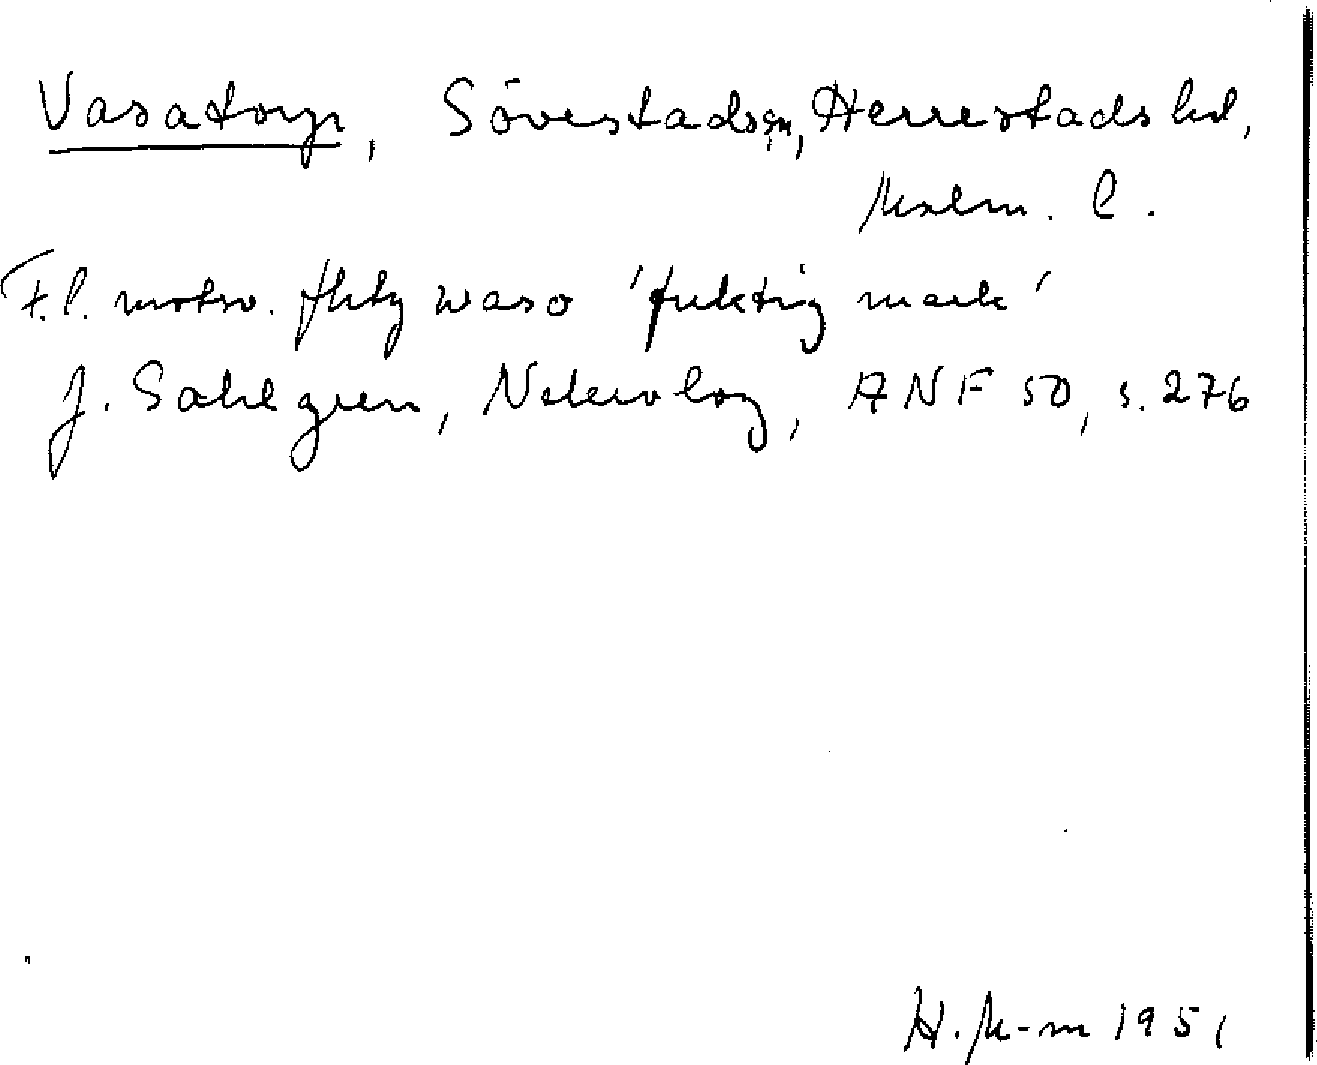 Vasatorp, Sövestads sn, Herrestads hd,
Malm. l.
F.l. motsv. fhtg waso 'fuktig mark'
J. Sahlgren, Nekrolog, ANF 50, s. 276
H. M-m 1951